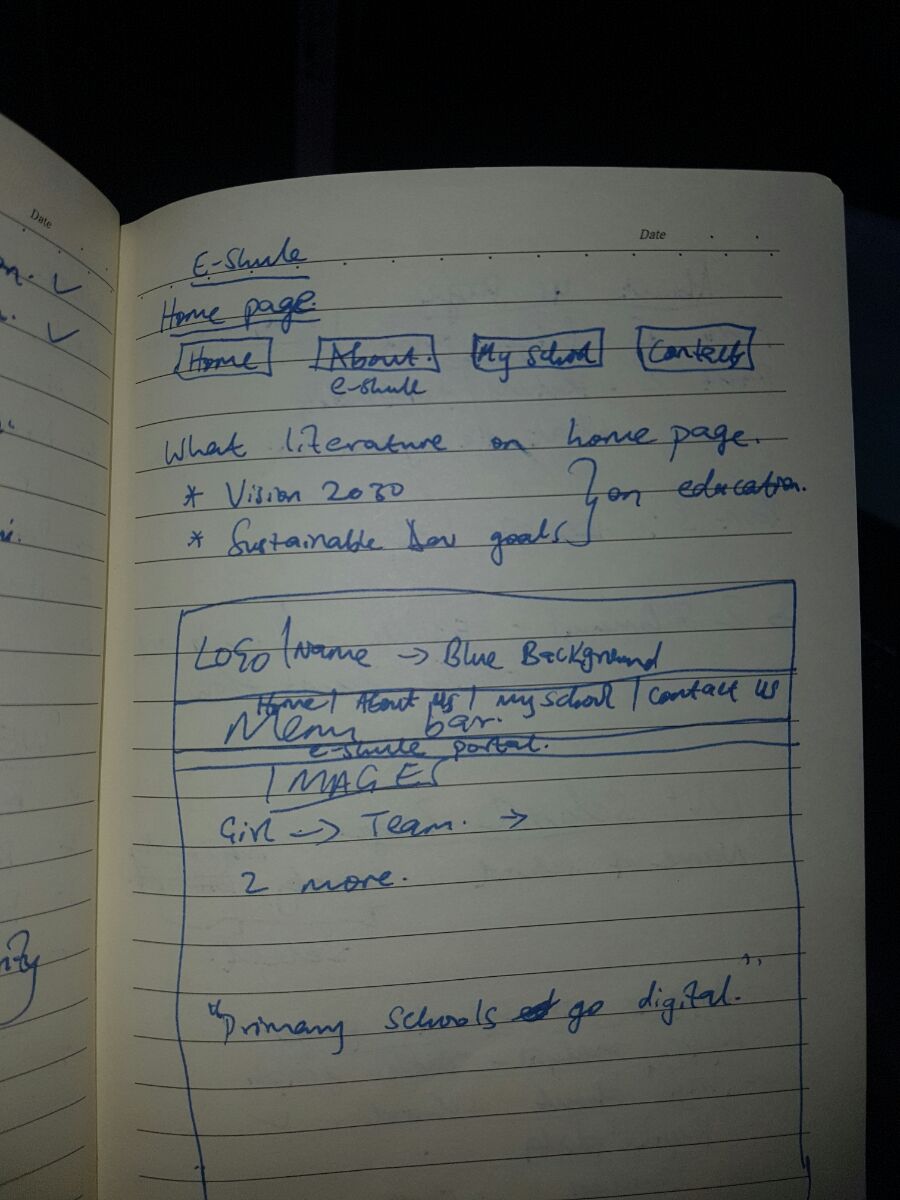 Date
Date
E-Shule
Home page.
Home About. My School Contact
e-shule
What literature on home page.
* Vision 2030
* Sustainable Dev goals } on education.
LOGO | Name → Blue Background
Home | About Us | My School | Contact Us
Menu bar.
e-shule portal.
IMAGES
Girl → Team. →
2 more.
"Primary schools go digital."